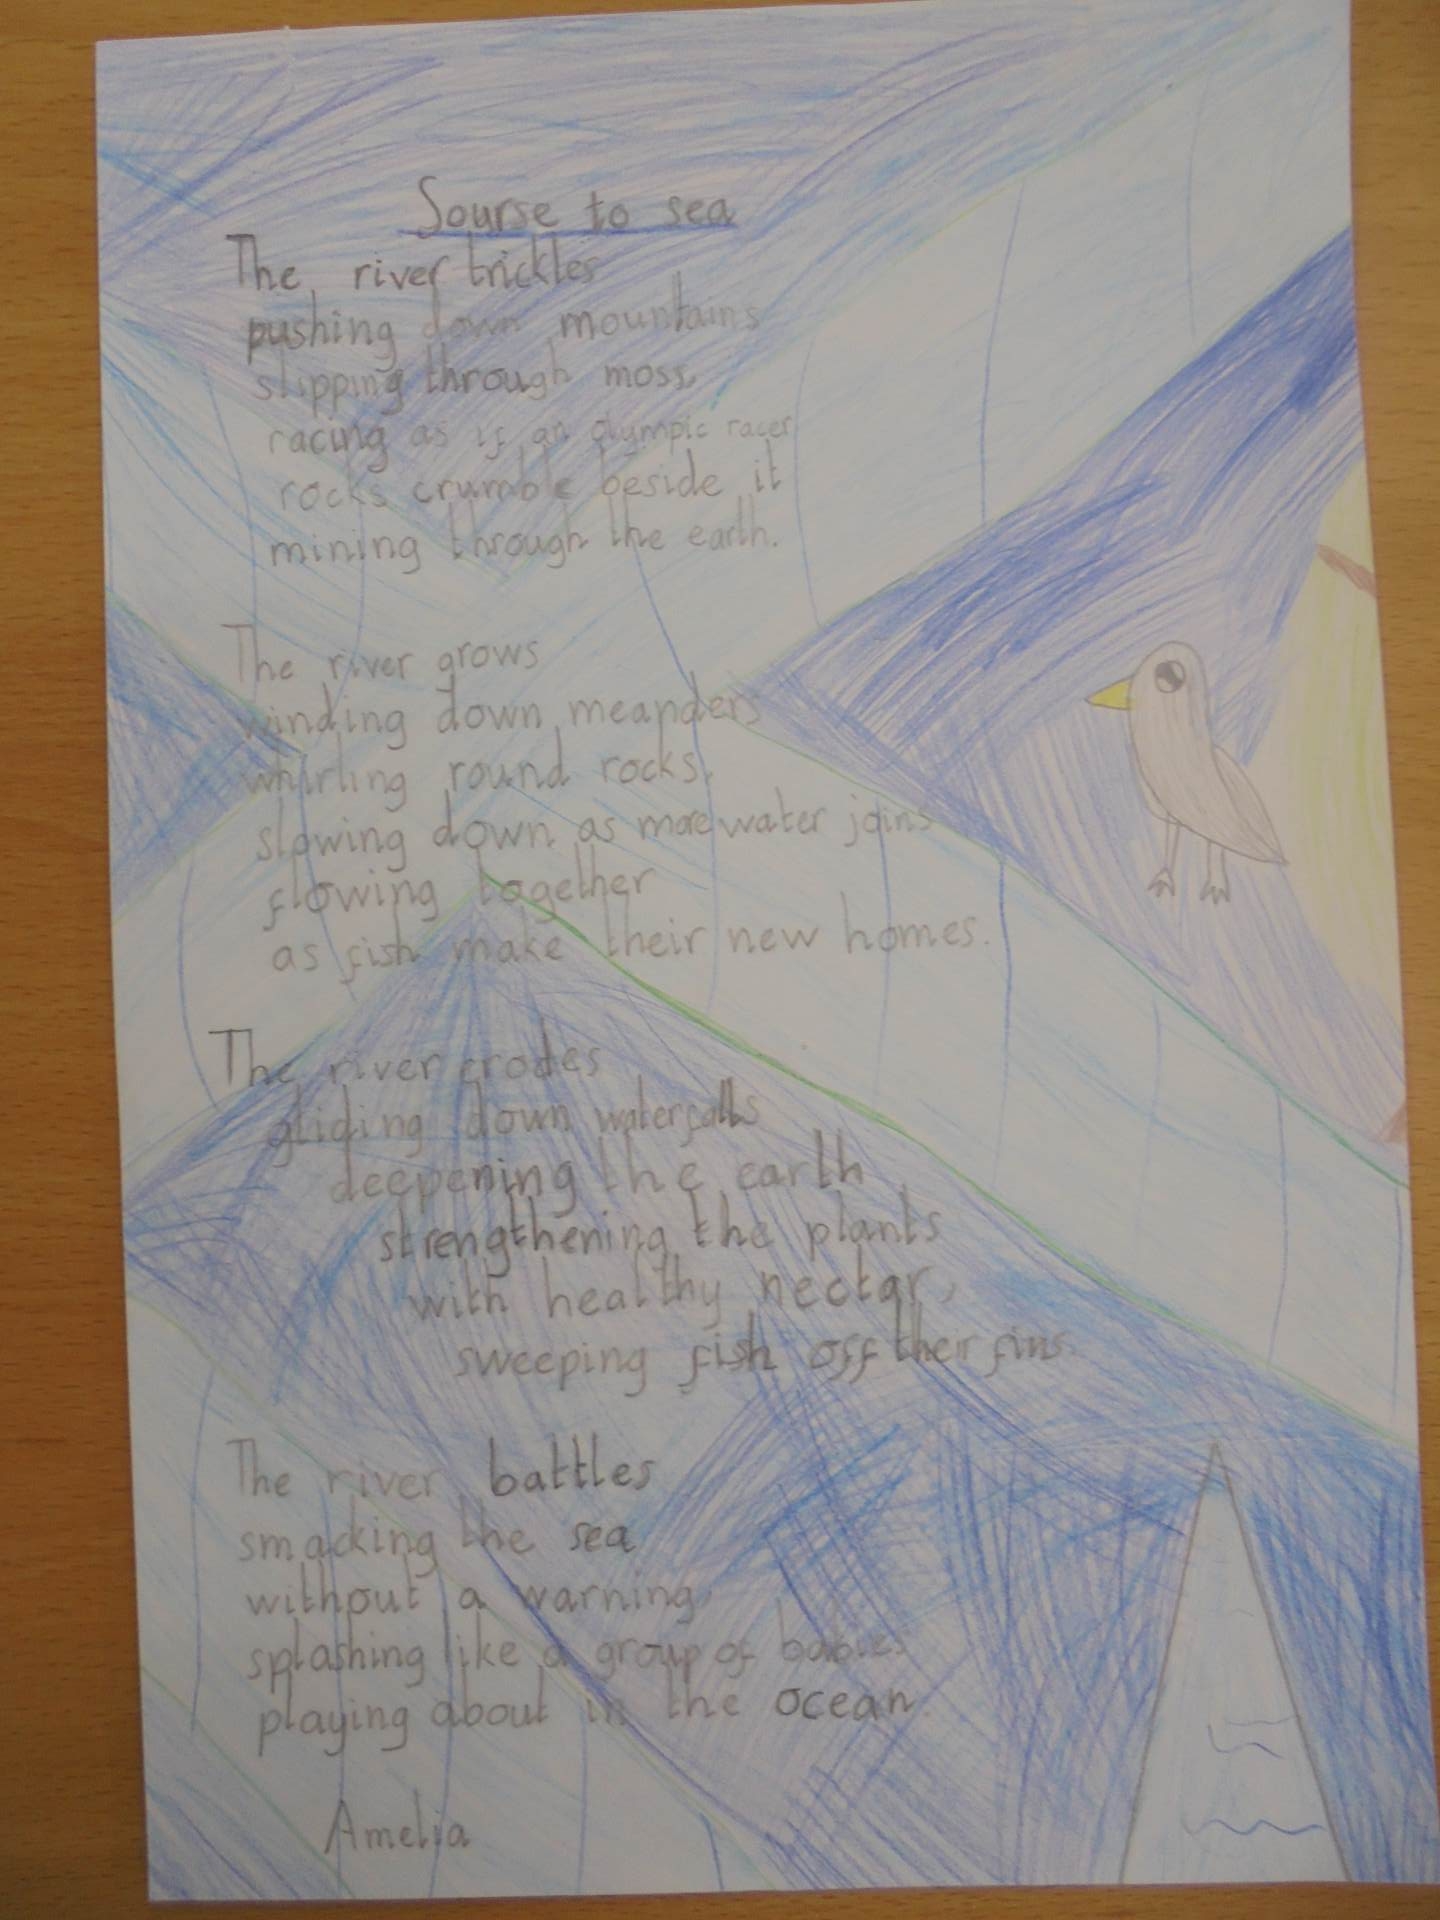 Sourse to sea
The river trickles
pushing down mountains
slipping through moss,
racing as if an olympic racer
rocks crumble beside it
mining through the earth.
The river grows
winding down meanders
whirling round rocks,
slowing down as more water joins
flowing together
as fish make their new homes.
The river erodes
gliding down waterfalls
deepening the earth
strengthening the plants
with healthy nectar,
sweeping fish off their fins.
The river battles
smacking the sea
without a warning,
splashing like a group of babies
playing about in the ocean.
Amelia